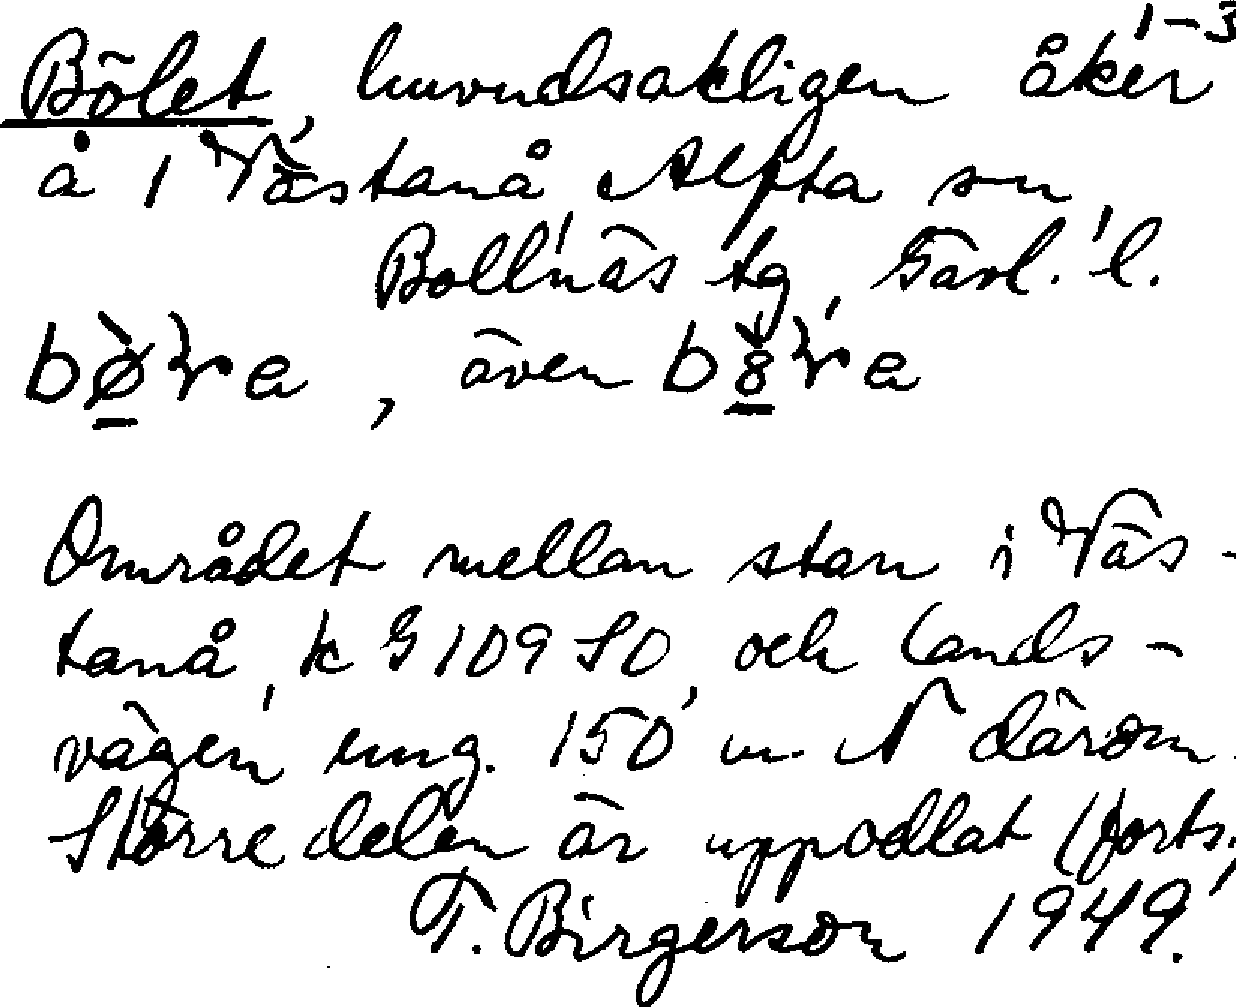 1-3
Bölet, huvudsakligen åker
å 1 Västanå, Alfta sn,
Bollnäs tg, Gävl. l.
även
Området mellan stan i Väs-
tanå, k G 109 SO, och lands-
vägen ung. 150 m N därom.
Större delen är uppodlat (forts.)
T. Birgerson 1949.